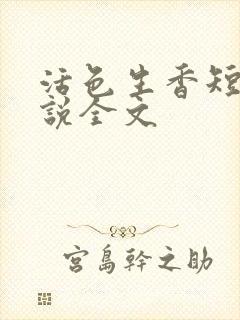 活色生香短
說全文
宮島幹之助